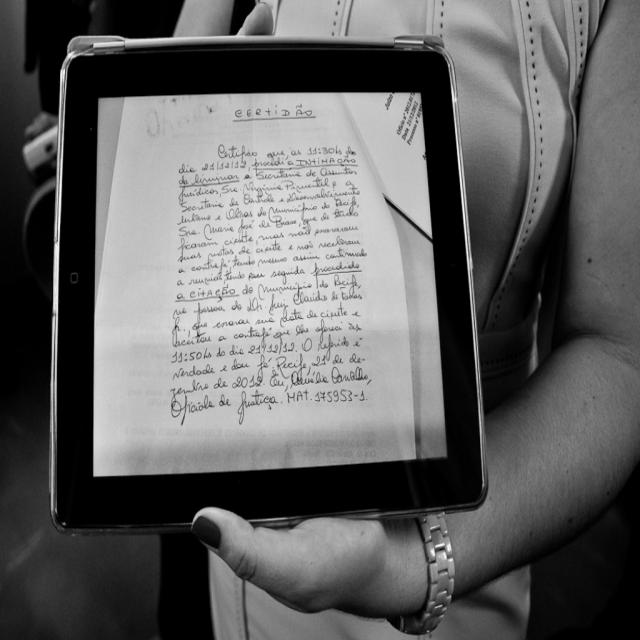 CERTIDÃO
Certifico que às 11:30hs do
dia 21/12/12, procedi a INTIMAÇÃO
da liminar a Secretaria de Assuntos
Jurídicos, Sra. Virgínia Pimentel e a
Secretaria de Controle e Desenvolvimento
Urbano e Obras do Município do Recife,
Sra. Maria José de que de tudo
ficaram cientes, mas não exararam
suas notas de ciente e nem receberam
a contrafé, tendo mesmo assim confirmado
a tendo em seguida procedido
a CITAÇÃO do Município do Recife,
na pessoa do Dr. Luiz Claudio de
que exarou sua nota de ciente e
aceitou a contrafé que lhe às
11:50hs do dia 21/12/12. O referido é
verdade e dou fé. Recife, 21 de de-
zembro de 2012. Eu, Carvalho,
Oficiala de Justiça. MAT. 175953-1.